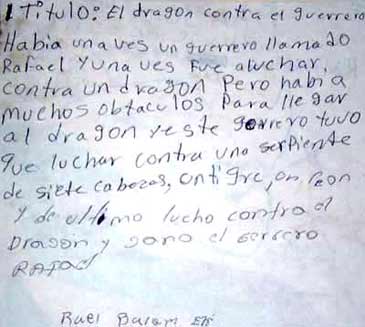 1 Titulo: El dragon contra el guerrero
Habia una ves un guerrero llamado
Rafael y una ves fue aluchar,
contra un dragon Pero habia
muchos obtaculos Para lle gar
al dragon y este gerrero tuvo
que luchar contra una serpiente
de siete cabezas, un tigre, un leon
y de ultimo lucho contra el
Dragon y gano el gerrero
RAFael